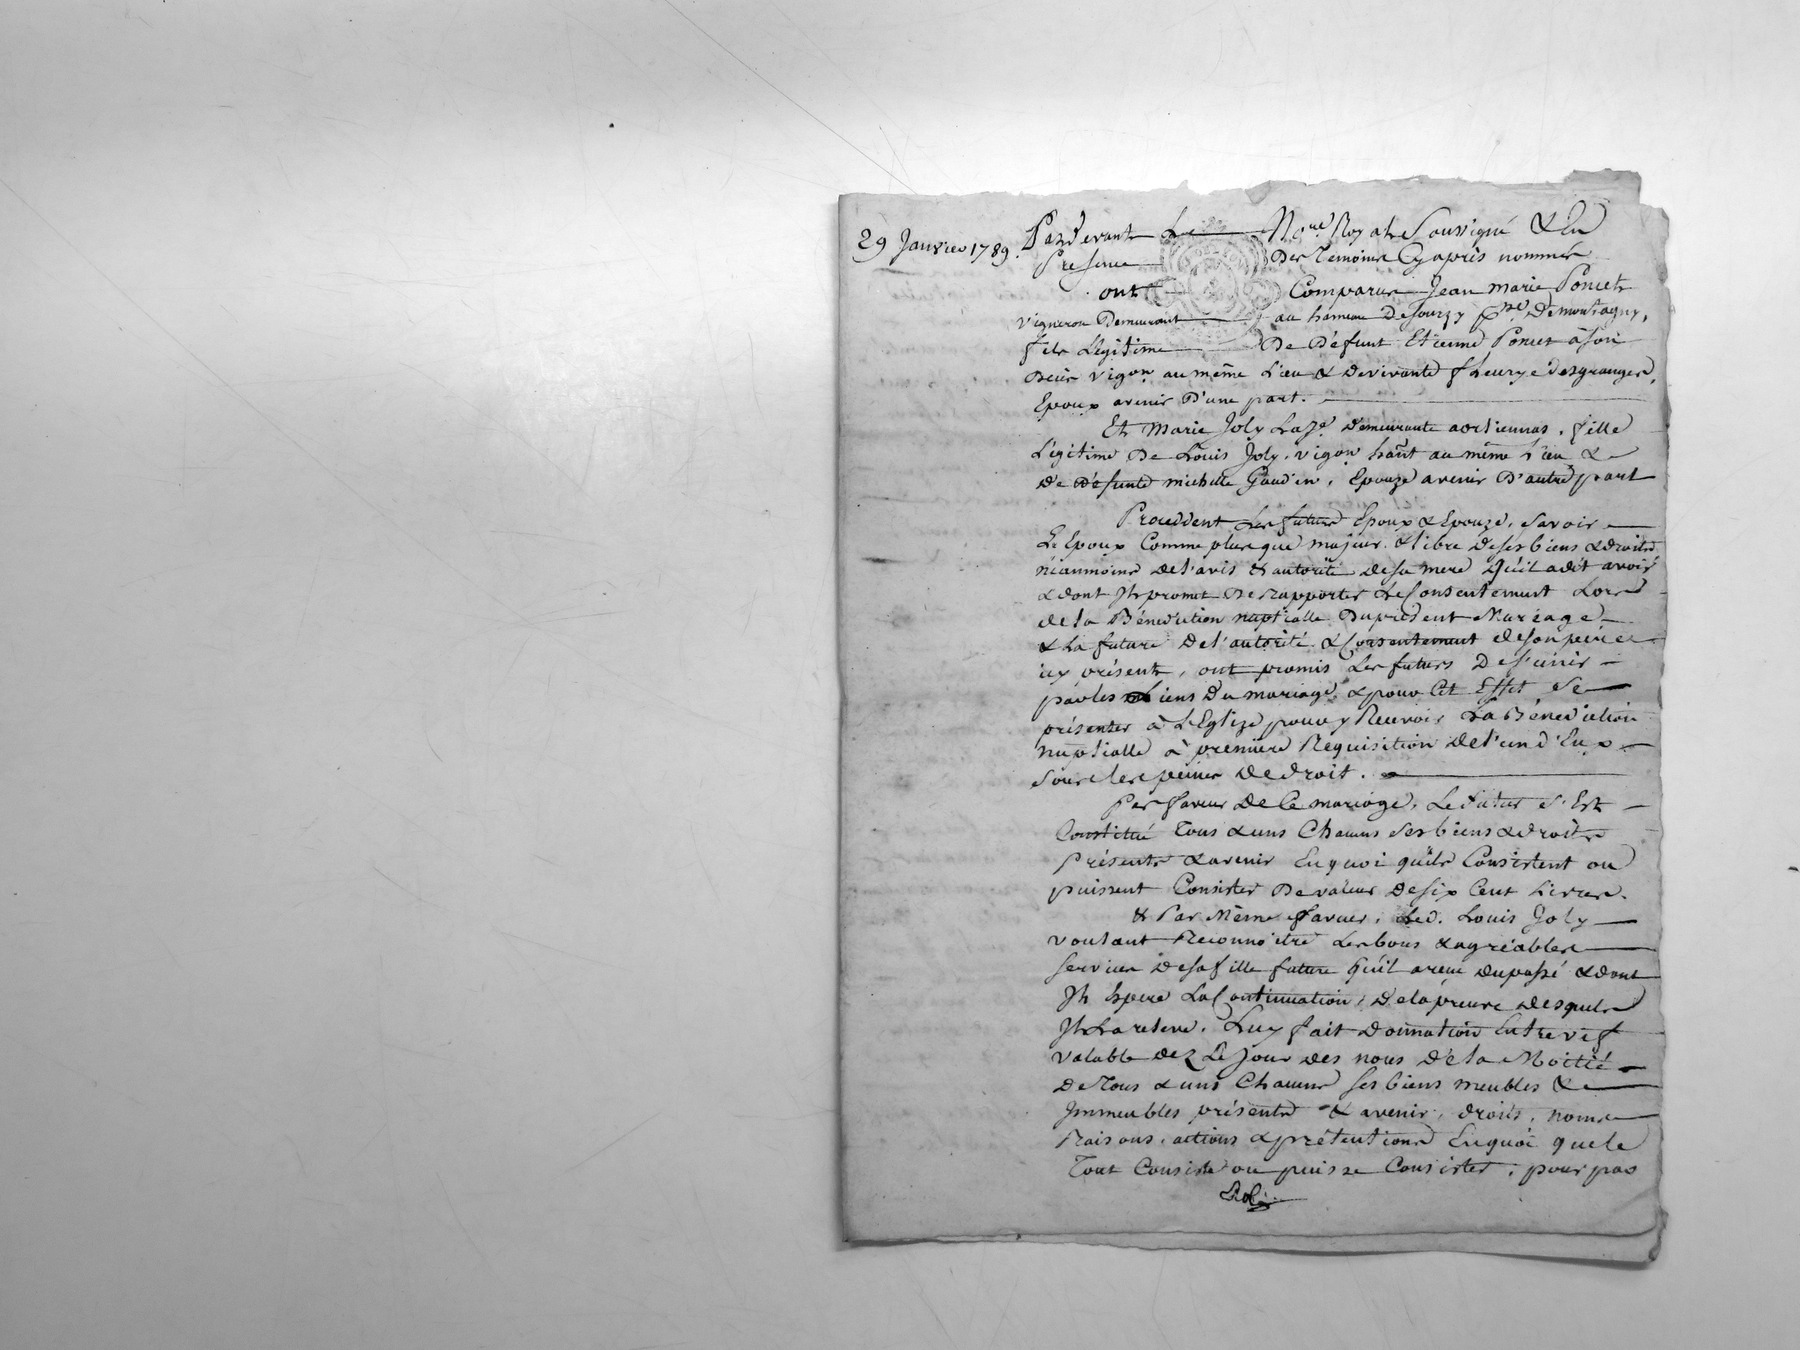 29 Janvier 1789.
Pardevant Le Nore Royal Soussigné & En
Presence Des Temoins Cyaprès nommés
ont Comparus Jean marie Poncet
vigneron Demeurant au hameau De Sourzy psse De montagny,
fils Légitime De Défunt Etienne Poncet à son
décès vigon au même Lieu & De vivante fleurye Desgranges,
Epoux avenir D'une part.
Et Marie Joly Demeurante Fille
Légitime De Louis Joly, vigon hant au même Lieu &
De Défunte michelle Gaudin, Epouze avenir D'autre part
Procédent Les future Epoux & Epouze, savoir
L'Epoux Comme plus que majeur & libre De ses biens & droits
néanmoins De l'avis & autorité De sa mere Qu'il a dit avoir
& dont Il promet De Rapporter Le Consentement Lors
de la Bénédiction nuptialle Du présent Mariage
& La future De l'autorité & Consentement De son père
icy présent, ont promis Les futurs De s'unir
par les Liens Du mariage & pour Cet Effet se
présenter à L'Eglize pour y Recevoir La Bénédiction
nuptialle à première Requisition De l'un d'Eux
sous les peines De droit.
Par faveur De Ce mariage, Le futur s'Est
Constitué Tous & uns Chacuns ses biens & droits
Présents & avenir En quoi qu'ils Consistent ou
puissent Consister De valeur De six Cent Livres.
& Par Même faveur, Led. Louis Joly
voulant Reconnoitre Les bons & agréables
services De sa fille future Qu'il a reçu du passé & dont
Il Espere La Continuation, De la preuve Desquels
Il La releve, Luy fait Donnation Entre vif
valable dez Le Jour des noces De la Moitié
De Tous & uns Chacuns ses biens meubles &
Immeubles présents & avenir, droits, noms
Raisons, actions & prétentions En quoi que le
Tout Consiste ou puisse Consister, pour par